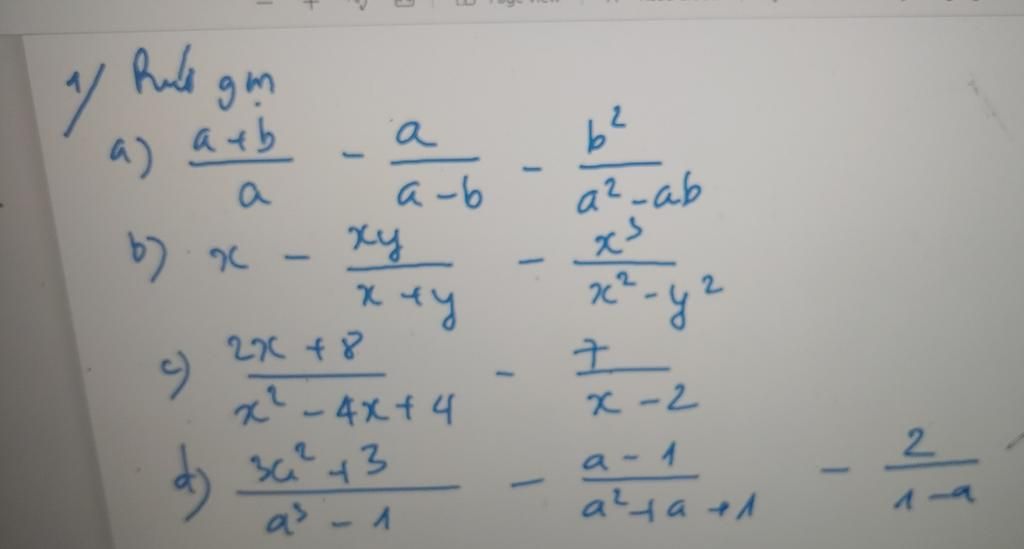 1/ Rút gọn
a) \frac{a+b}{a} - \frac{a}{a-b} - \frac{b^2}{a^2-ab}
b) x - \frac{xy}{x+y} - \frac{x^3}{x^2-y^2}
c) \frac{2x+8}{x^2-4x+4} - \frac{7}{x-2}
d) \frac{3a^2+3}{a^3-1} - \frac{a-1}{a^2+a+1} - \frac{2}{1-a}